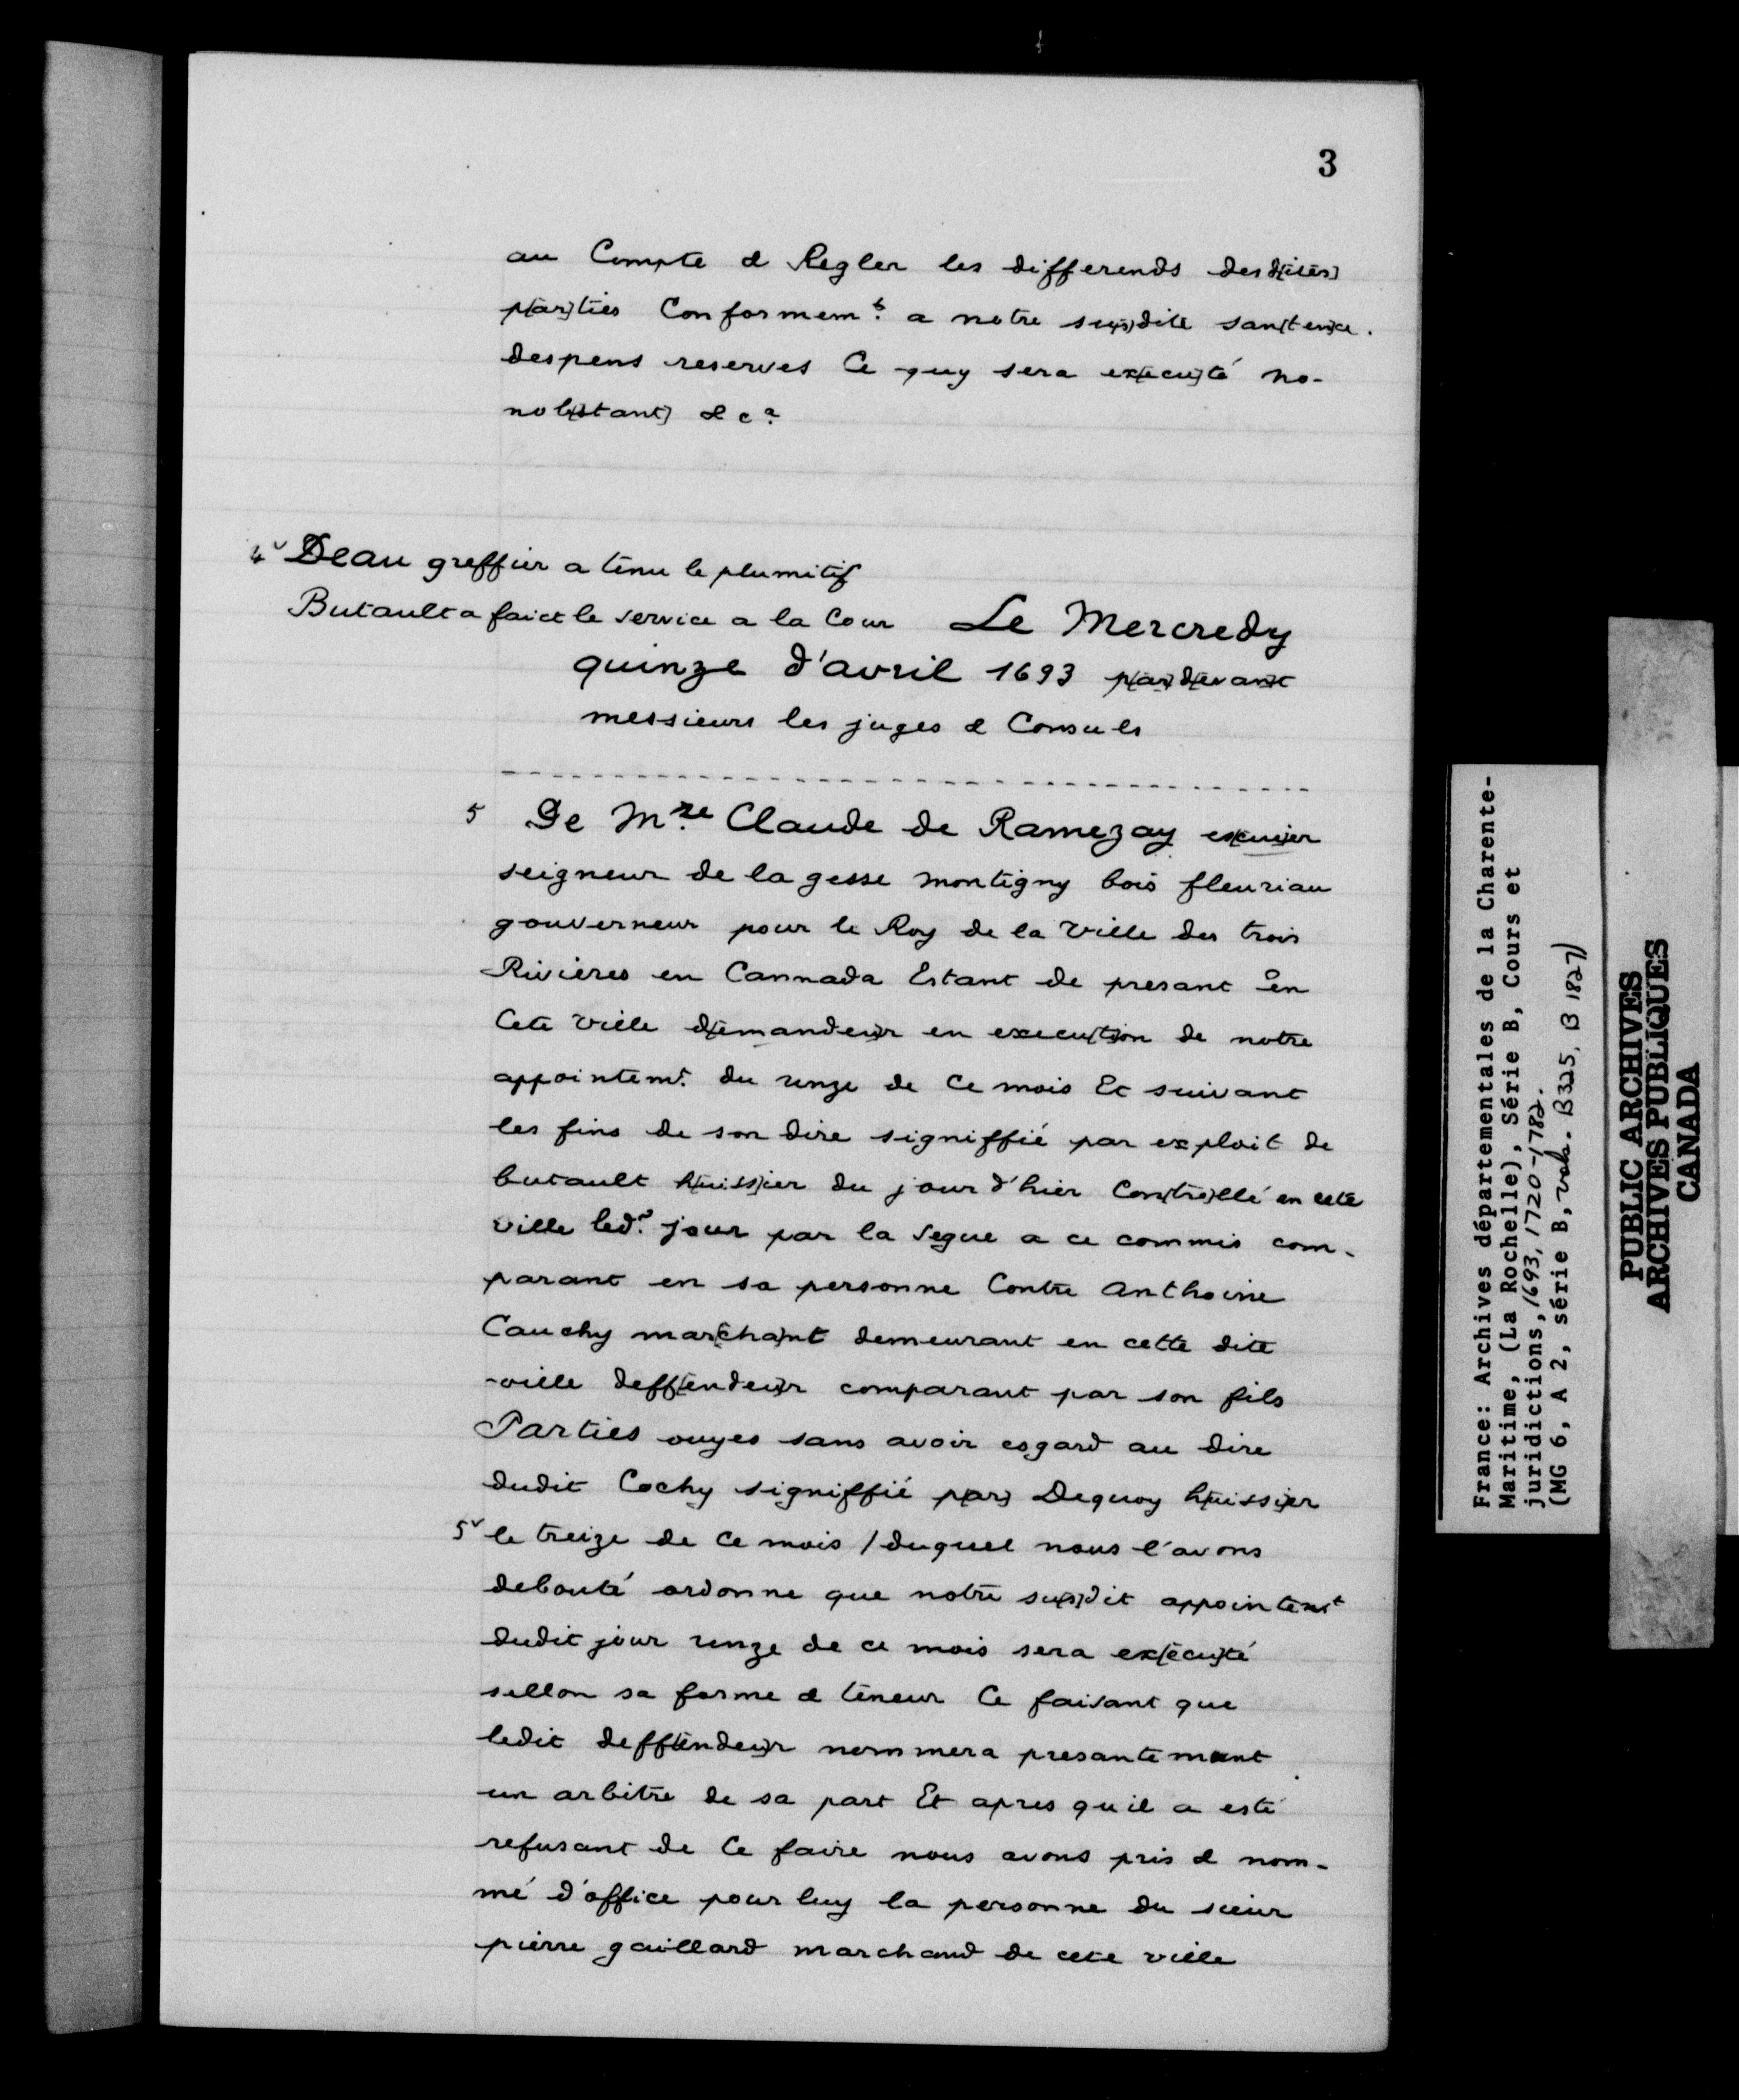 3
au Compte & Regler les differends desd[ites]
p[ar]ties Conformem.t a notre su[s]dite san[ten]ce.
despens reserves Ce quy sera ex[ecu]té no-
nob[stant] & c.a
4v Deau greffier a tenu le plumitif
Butault a faict le service a la Cour Le Mercredy
quinze d'avril 1693 p[ar] d[evan]t
messieurs les juges & Consuls
5 De M.re Claude de Ramezay es[cui]er
seigneur de la gesse montigny bois fleuriau
gouverneur pour le Roy de la Ville des trois
Rivieres en Cannada Estant de presant en
Cete ville d[emandeu]r en execu[ti]on de notre
appointem.t du unze de Ce mois Et suivant
les fins de son dire signiffié par exploit de
butault h[uiss]ier du jour d'hier Con[tro]llé en cete
ville led.t jour par la Segue a ce commis com-
parant en sa personne Contre Anthoine
Cauchy mar[cha]nt demeurant en cette dite
ville deff[endeu]r comparant par son fils
Parties ouyes sans avoir esgard au dire
dudit Cochy signiffié p[ar] Dequoy h[uissi]er
5v le treize de Ce mois / duquel nous l'avons
debouté ordonne que notre su[s]dit appointem.t
dudit jour unze de ce mois sera ex[ecu]té
sellon sa forme & teneur Ce faisant que
ledit deff[endeu]r nommera presantemant
un arbitre de sa part Et apres qu'il a esté
refusant de Ce faire nous avons pris & nom-
mé d'office pour luy la personne du sieur
pierre gaillard marchand de cete ville
France: Archives départementales de la Charente-
Maritime, (La Rochelle), Série B, Cours et
juridictions, 1693, 1720-1782.
(MG 6, A 2, série B, vols. B325, B 1827)
PUBLIC ARCHIVES
ARCHIVES PUBLIQUES
CANADA